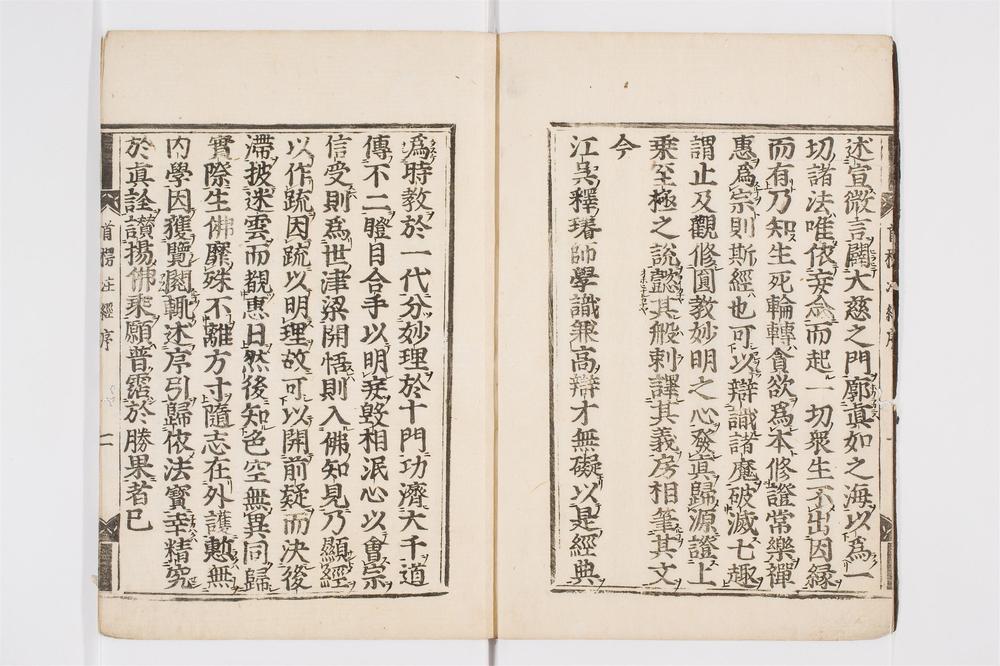 述宣微言闢大慈之門廓眞如之海以爲一
切諸法唯依妄念而起一切衆生不出因縁
而有乃知生死輪轉貪欲爲本修證常樂禪
惠爲宗則斯經也可以辯識諸魔破滅七趣
謂止及觀修圓教妙明之心發眞歸源證上
乘至極之説懿其般剌譯其義房相筆其文
今
江呉釋璿師學識兼高辯才無礙以是經典
爲時教於一代分妙理於十門功濟大千道
傳不二瞪目合手以明妄毀相泯心以會宗
信受則爲世津梁開悟則入佛知見乃顯經
以作䟽因䟽以明理故可以開前疑而決後
滯披迷雲而覩惠日然後知色空無異同歸
實際生佛靡殊不離方寸隨志在外護慙無
内學因獲覽閲輒述序引歸依法寳幸精究
於眞詮讃揚佛乘願普霑於勝果者已
首楞 經序
首楞注經序 二